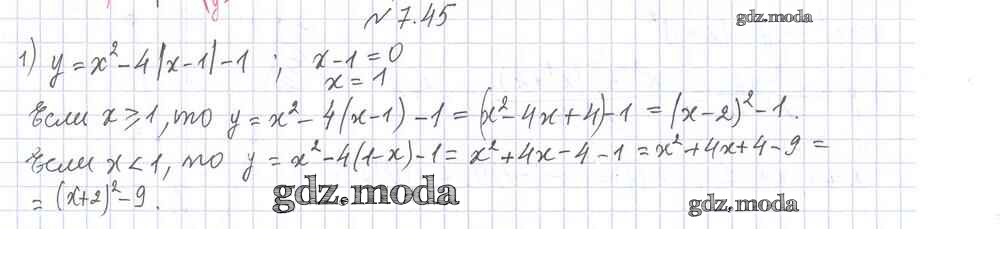 № 7.45
gdz.moda
1) y = x² - 4|x-1| - 1 ; x - 1 = 0
x = 1
Если x ≥ 1, то y = x² - 4(x-1) - 1 = (x² - 4x + 4) - 1 = (x-2)² - 1.
Если x < 1, то y = x² - 4(1-x) - 1 = x² + 4x - 4 - 1 = x² + 4x + 4 - 9 =
= (x+2)² - 9.
gdz.moda
gdz.moda